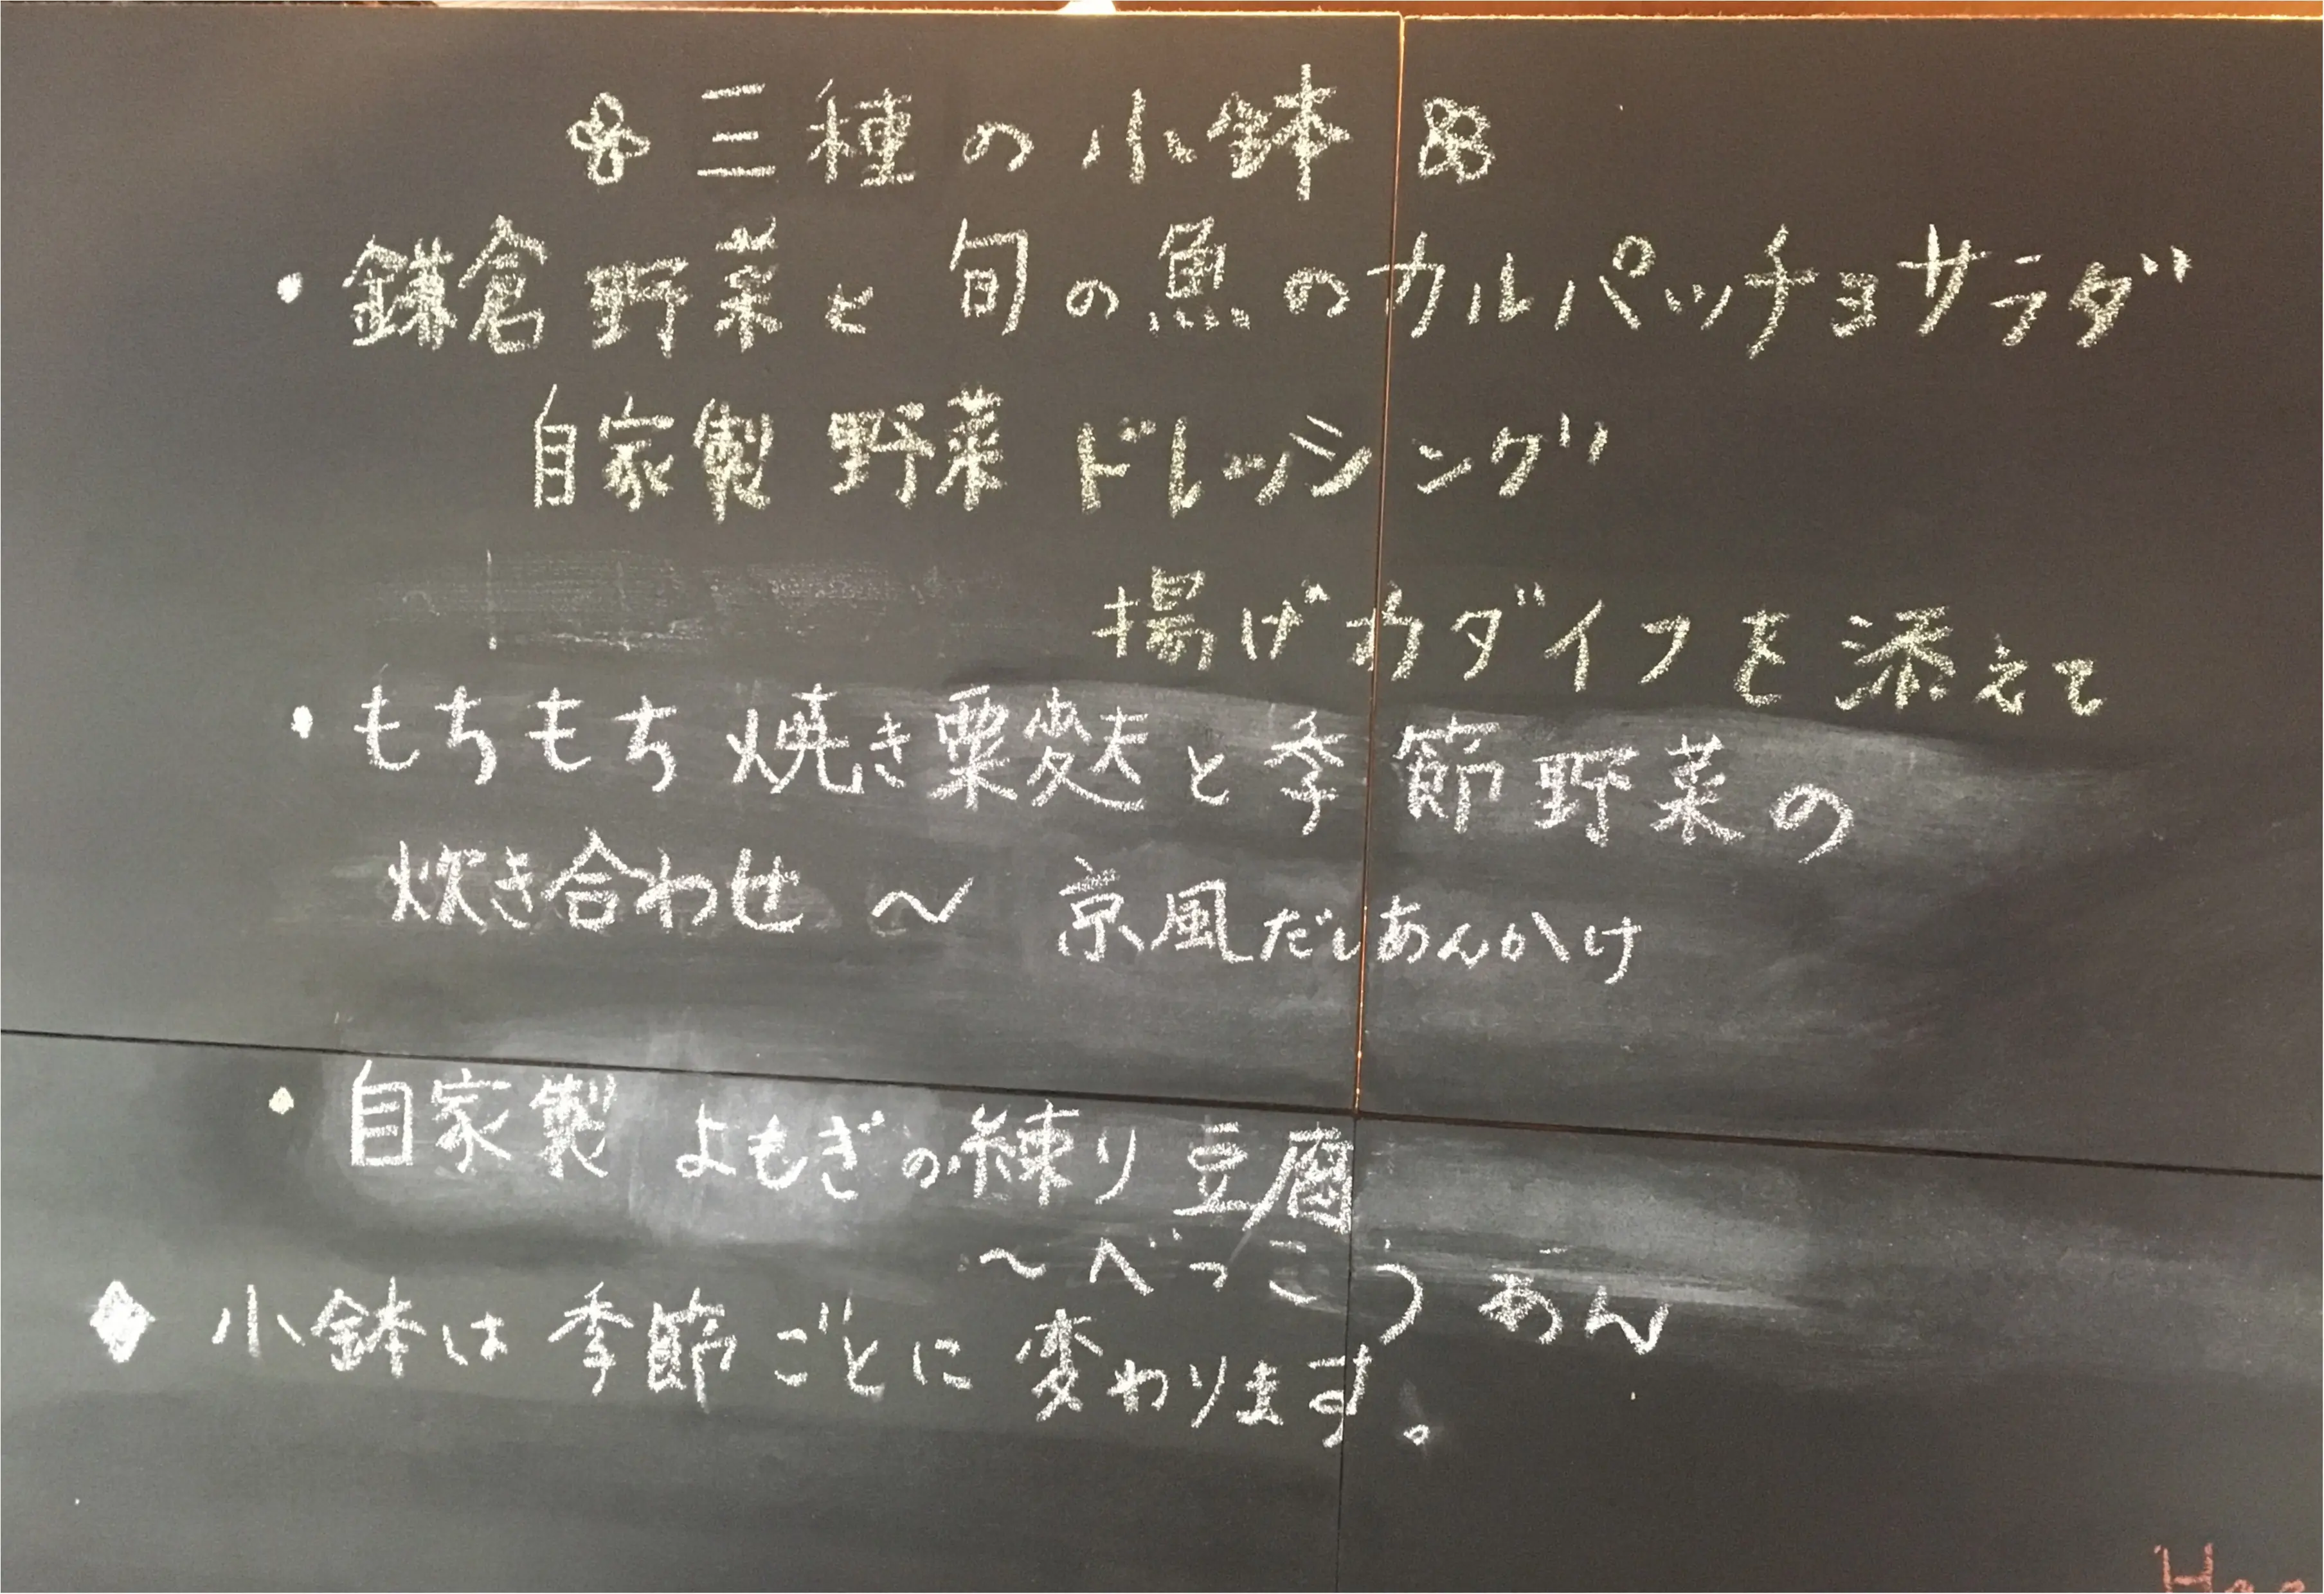 三種の小鉢
・鎌倉野菜と旬の魚のカルパッチョサラダ
自家製野菜ドレッシング
揚げカダイフを添えて
・もちもち焼き粟麩と季節野菜の
炊き合わせ ～ 京風だしあんかけ
・自家製よもぎの練り豆腐
～べっこうあん
◆小鉢は季節ごとに変わります。